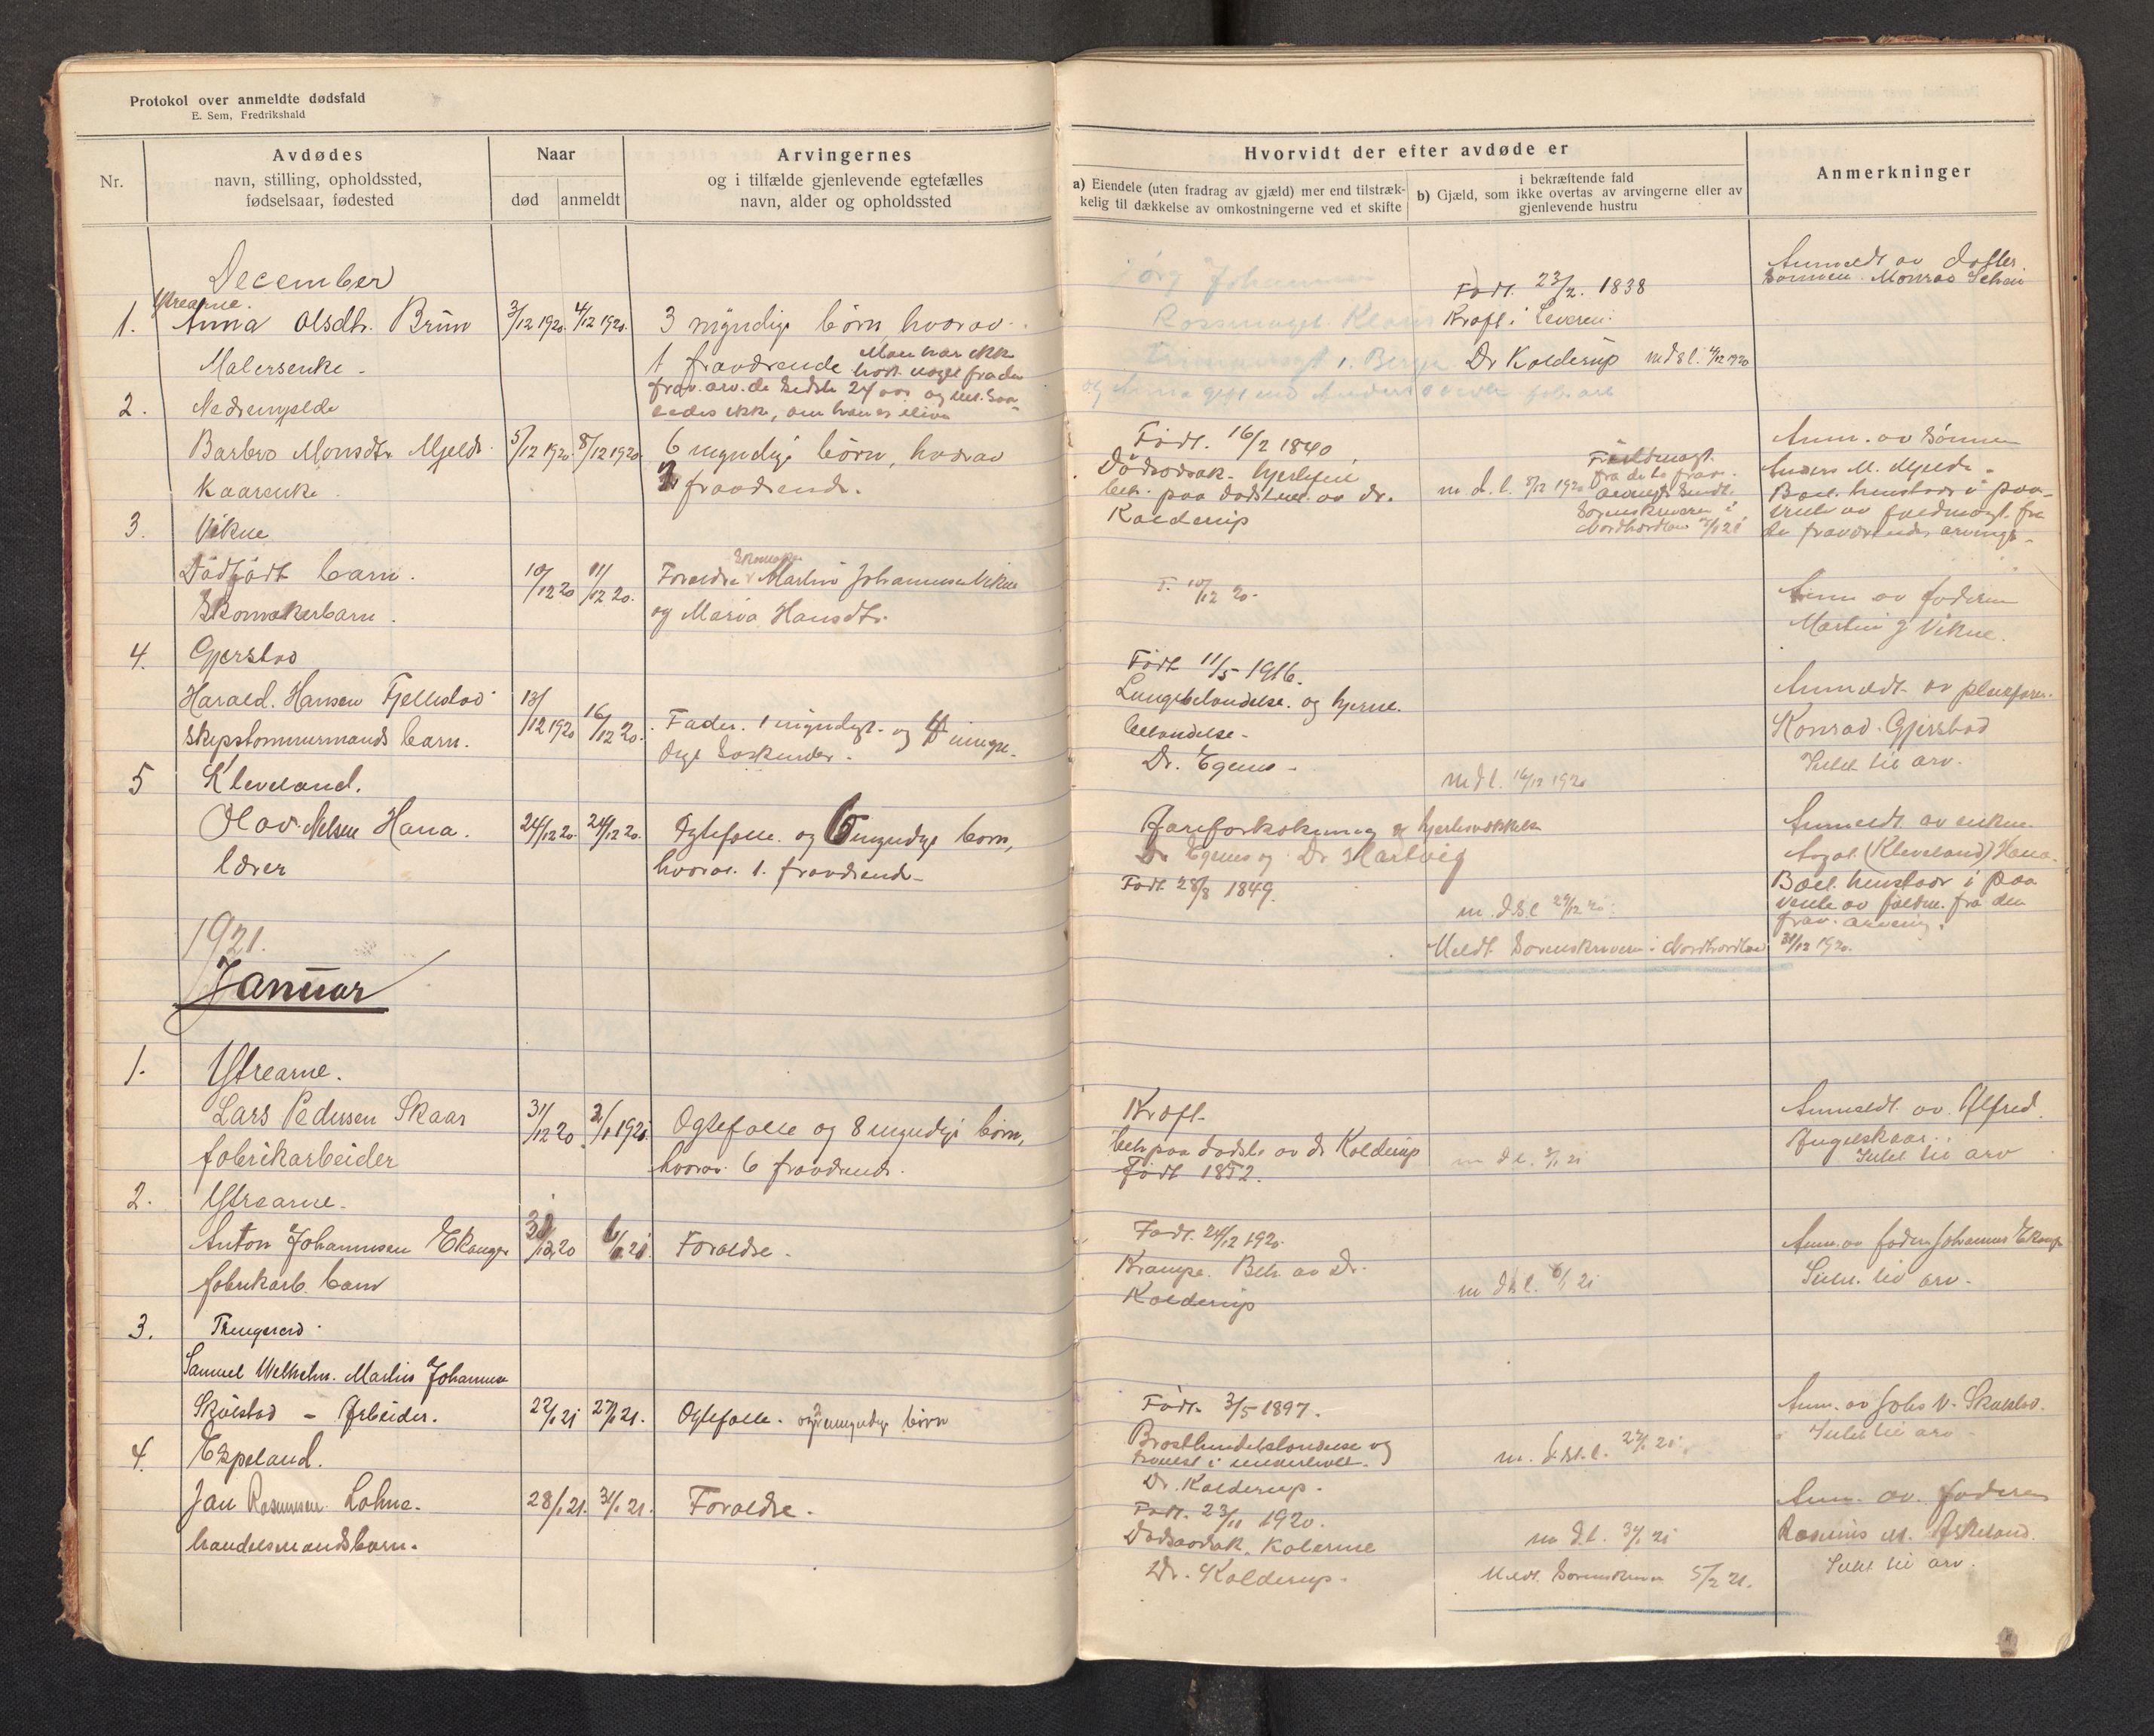 Protokol over anmeldte dødsfald
E. Sem, Fredrikshald
Nr.
Avdødes
navn, stilling, opholdssted,
fødselsaar, fødested
Naar
død
anmeldt
Arvingernes
og i tilfælde gjenlevende egtefælles
navn, alder og opholdssted
Hvorvidt der efter avdøde er
a) Eiendele (uten fradrag av gjæld) mer end tilstræk-
kelig til dækkelse av omkostningerne ved et skifte
i bekræftende fald
b) Gjæld, som ikke overtas av arvingerne eller av
gjenlevende hustru
Anmerkninger
December
Ytrearne.
1. Anna Olsdtr. Brun 3/12 1920 4/12 1920. 3 myndige børn, hvorav
Malerenke.
1 fraværende Man har ikke
hørt noget fra den
frav. arv. de sidste 24 aar og vet saa-
ledes ikke, om han er ilive
Født. 23/2. 1838
Kræft i Leveren.
Dr Kolderup m d s l. 4/12 1920
Anmeldt av datter
sønnen. Monrad
2. Nedremjelde
Barbro Monsdtr Mjelde 5/12 1920 8/12 1920 6 myndige børn, hvorav
Kaarenke.
2 fraværende.
Født. 16/2 1840,
Dødsaarsak. hjertefeil
beh. paa dødsleie av dr.
Kolderup
m d. l. 8/12 1920
Fuldmagt.
fra de to frav.
arvinger sendt
Sorenskriveren i
Nordhordland
Anm. av sønnen
Anders M. Mjelde.
Boet henstaar i paa-
vente av fuldmagt fra
de fraværende arvinger.
3. Vikne
Dødfødt barn. 10/12 20 11/12 20. Forældre Skomaker Martin Johannessen Vikne
Skomakerbarn.
og Maria Hansdtr.
F. 10/12 20.
Anm av faderen
Martin J Vikne.
4. Gjerstad
Harald. Hansen Fjellstad 13/12 1920 16/12 20. Fader. 1 myndig. og 4 umyn-
skipstømmermands barn.
dige søskender.
Født 11/5 1916.
Lungebetændelse. og hjerne.
betændelse.
Dr. Egenes
m d l. 16/12 1920
Anmeldt av pleiefaren.
Konrad. Gjerstad
Intet til arv.
5 Kleveland.
Olav. Nelsen Hana. 24/12 20. 24/12 20. Egtefælle. og 6 myndige børn,
lærer
hvorav. 1. fraværende.
Aareforkalkning og hjertesvækkelse
Dr Egenes og Dr. Martvig
Født 28/8 1849.
m. d s. l 24/12 20.
Meldt Sorenskriveren i Nordhordland 31/12 1920.
Anmeldt av enken.
(Kleveland) Hana.
Boet henstaar i paa
vente av fuldm. fra den
frav. arving.
1921.
Januar
1. Ytrearne.
Lars Pedersen Skaar 31/12 20 3/1 1921. Egtefælle og 8 myndige børn,
fabrikarbeider
hvorav 6 fraværende.
Kræft.
beh paa dødsl. av dr Kolderup
Født 1852.
m d l. 3/1 21
Anmeldt av. Alfred.
Angelskaar.
Intet til arv
2. Ytrearne.
Anton Johannsen Ekanger 30/12 20 6/1 21. Forældre.
fabrikarb. barn
Født. 24/12 1920.
Krampe. Beh. av Dr.
Kolderup
m d s l. 6/1 21
Anm. av faderen Johannes Ekanger
Intet. til arv.
3. Trengereid.
Samuel Wilhelm. Martin Johannsen
Skulstad - Arbeider. 22/1 21 27/1 21. Egtefælle. og 2 umyndige børn
Født. 3/5 1897.
Brysthindebetændelse og
i underlivet.
Dr. Kolderup.
m. d. st. l. 27/1 21.
Anm. av Johs V. Skulstad.
Intet til arv
4. Espeland.
Jan Rasmussen. Lohne. 28/1 21. 31/1 21. Forældre.
handelsmandsbarn.
Født. 23/11 1920.
Dødsaarsak. Kolerine
Dr. Kolderup.
m d. l. 31/1 21
Meldt. Sorenskriver 5/2 21.
Anm. av. faderen
Rasmus M. Askeland.
Intet til arv.